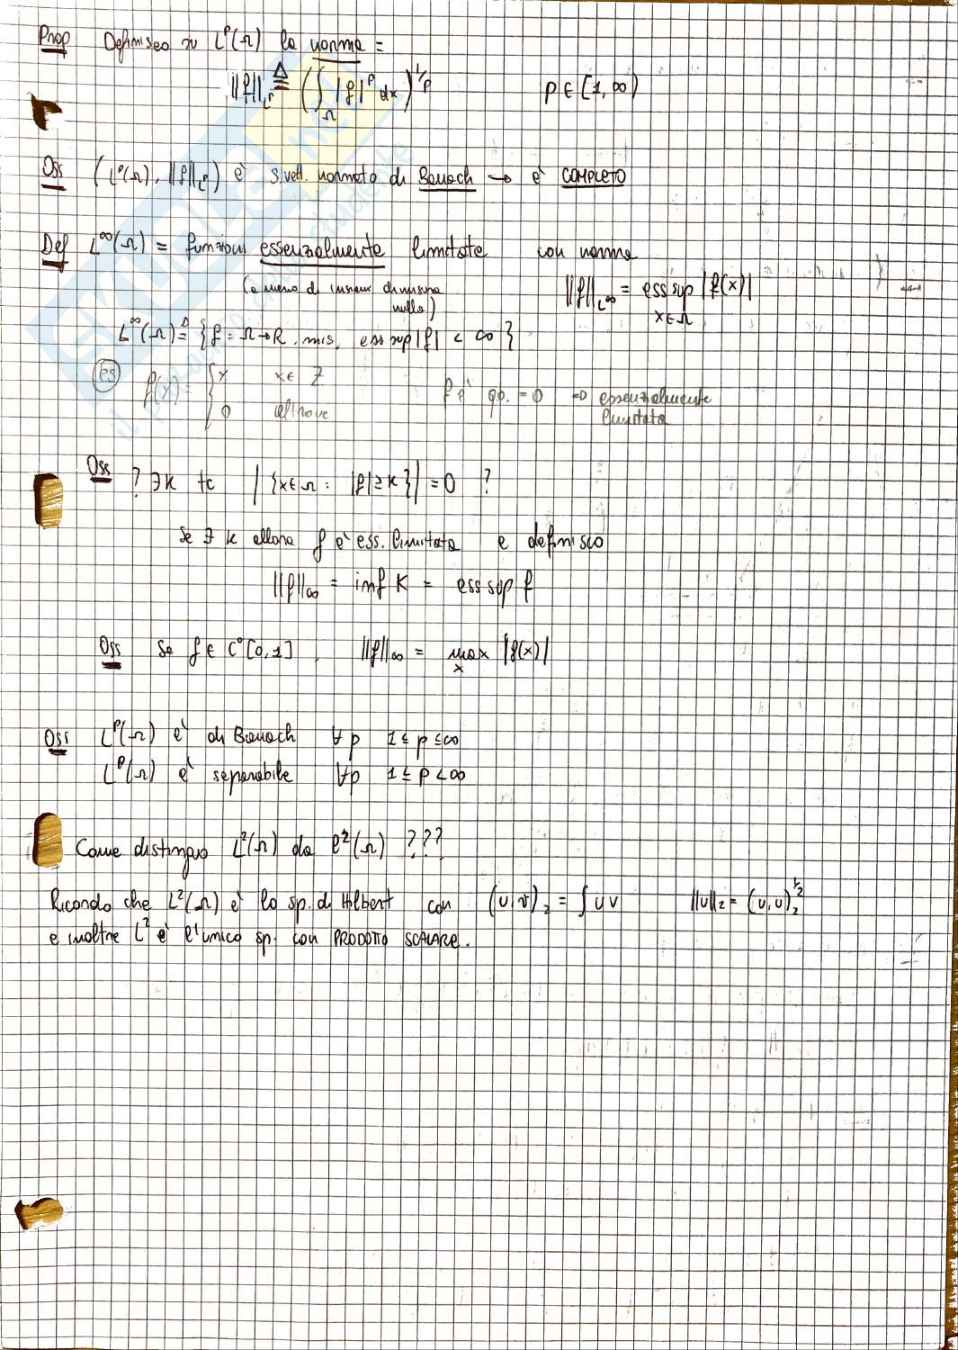 Prop Definisco su L^p(Ω) la norma =
||f||_{L^p} ≜ (∫_Ω |f|^p dx)^{1/p} p ∈ [1, ∞)
Oss (L^p(Ω), ||f||_{L^p}) è s.vett. normato di Banach → è COMPLETO
Def L^∞(Ω) = funzioni essenzialmente limitate con norma
(a meno di insiemi di misura
nulla)
||f||_{L^∞} = ess sup |f(x)|
x∈Ω
L^∞(Ω) ≜ {f: Ω→R, mis. ess sup|f| < ∞}
(es) f(x) = { x x ∈ Z
0 altrove
f è qo. = 0 ⇒ essenzialmente
limitata
Oss ? ∃K tc |{x∈Ω : |f| ≥ K}| = 0 ?
Se ∃ K allora f è ess. limitata e definisco
||f||_∞ = inf K = ess sup f
Oss Se f ∈ C°[0,1], ||f||_∞ = max |f(x)|
x
Oss L^p(Ω) è di Banach ∀p 1 ≤ p ≤ ∞
L^p(Ω) è separabile ∀p 1 ≤ p < ∞
Come distinguo L²(Ω) da ℓ²(Ω) ???
Ricordo che L²(Ω) è lo sp. di Hilbert con (u,v)_2 = ∫ u v ||u||_2 = (u,u)_2^{1/2}
e inoltre L² è l'unico sp. con PRODOTTO SCALARE.